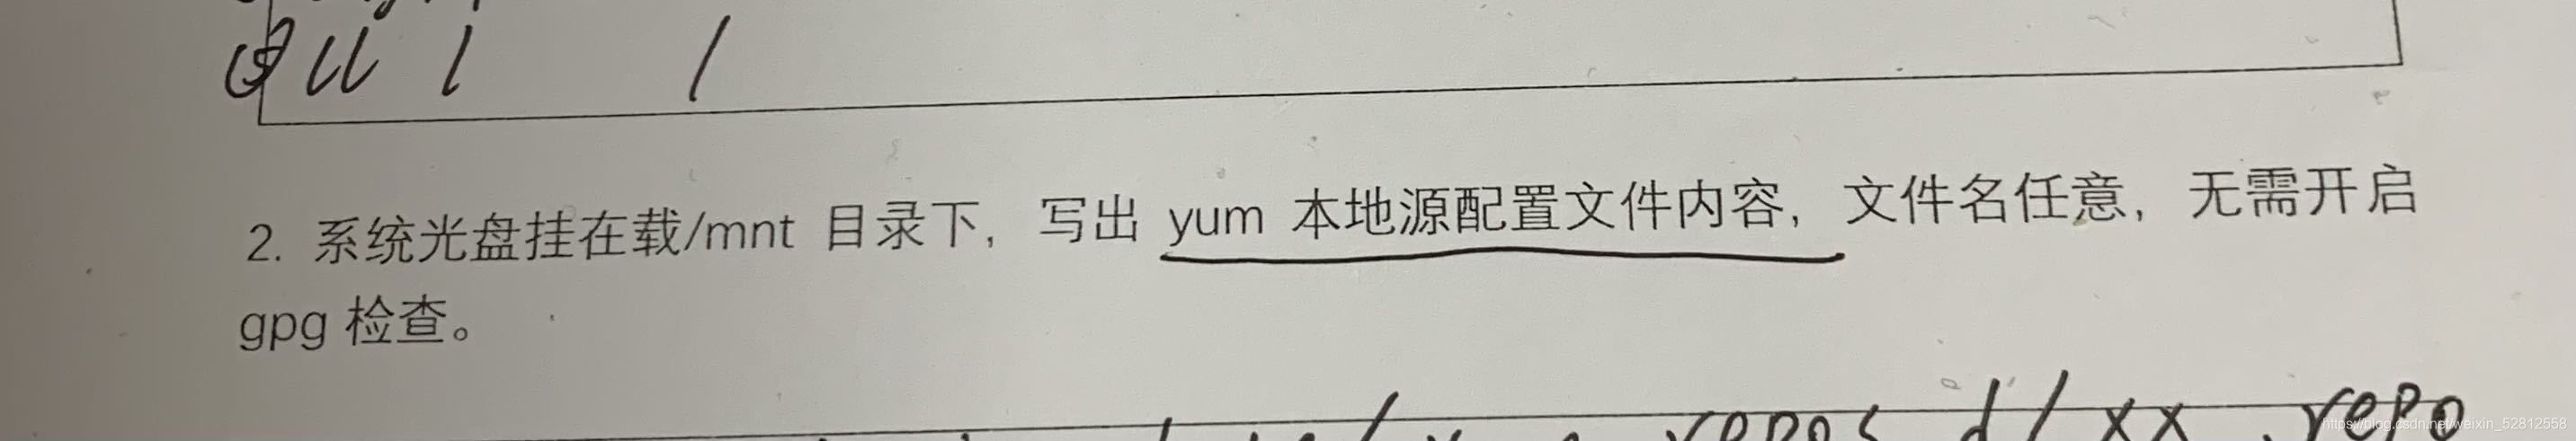 ⑤ ll / /
2. 系统光盘挂在载/mnt 目录下，写出 yum 本地源配置文件内容，文件名任意，无需开启
gpg 检查。
repos d/xx.repo
https://blog.csdn.net/weixin_52812558